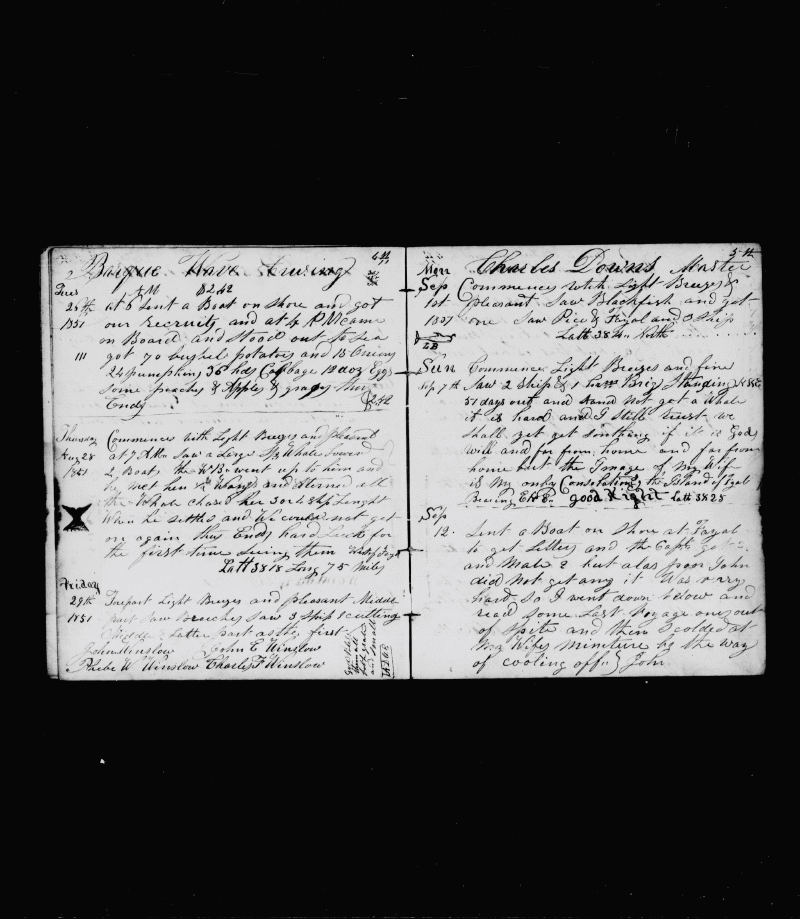 4 th
Barque Wave Cruising
Tues
A M
26th at 5 Sent a Boat on Shore and got
1851 our recruits and at 4 P M came
on Board and stood out to Sea
got 70 bushel potatoes and 15 Onions
24 pumpkins 36 hds Cabbage 10 doz Eggs
some peaches & Apples & grapes thus
Ends
Thursday Commences with Light Breezes and pleasant
Aug 28 at 7 A M Saw a Large Whale Lowerd
1851 2 Boats the went up to him and
he and all
the Whale chased her 3 or 4 Ship Lenght
When he settled and We could not get
on again thus Ends hard Luck for
the first time Seeing them
Latt 38 18 Long 75 Miles
Friday
29th Firspart Light Breezes and pleasant Middle
1851 part Saw Breeches Saw 3 Ship 1 cutting
Middle & Latter part as the first
John Winslow John E Winslow
Phebe W Winslow Charles F Winslow
and small
5 th
Mon Charles Downs Master
Sep Commences with Light Breezes &
1st pleasant Saw Blackfish and got
one Saw Pico & Fayal and 3 Ship
Latt 38 North
Sun Commence Light Breezes and fine
Sep 7th Saw 2 Ship & 1 Brig Standing
51 days out and and Not get a Whale
it is hard and I still trust we
shall get get something if it is God,
will and far from home and far from
home but the Image of My Wif
is My only Consolation the Island of Fyal
Bearing good Night Latt 38 25
Sep
12. Sent a Boat on Shore at Fayal
to get Letters and the Capt get
and Mate 2 but alas poor John
did Not get any it Was very
hard So I went down below and
read Some Last Voyage ones out
of Spite and then Scolded at
My Wifes miniture by the way
of cooling off. John